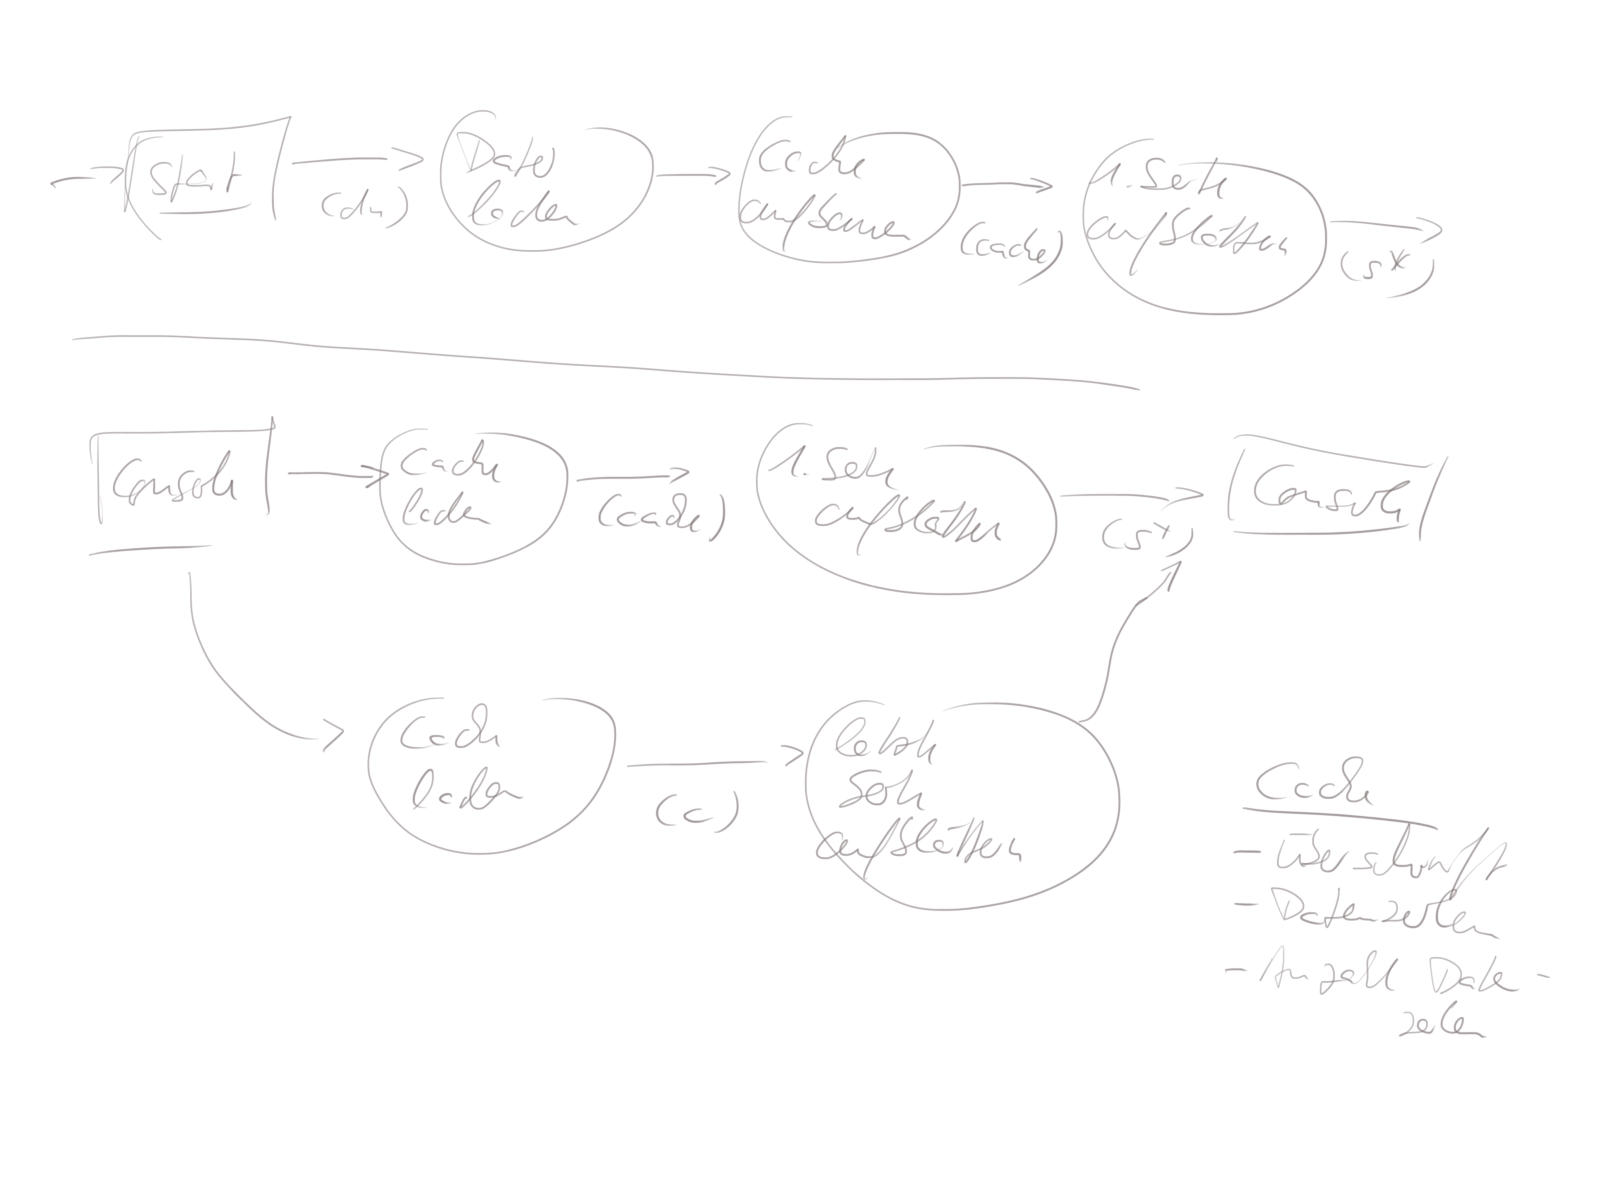 Start
(dn)
Datei
laden
Cache
aufbauen
(cache)
1. Seite
aufblättern
(s*)
Console
Cache
laden
(cache)
1. Seite
aufblättern
(s*)
Console
Cache
laden
(c)
letzte
Seite
aufblättern
Cache
- Überschrift
- Datenzeilen
- Anzahl Daten-
zeilen